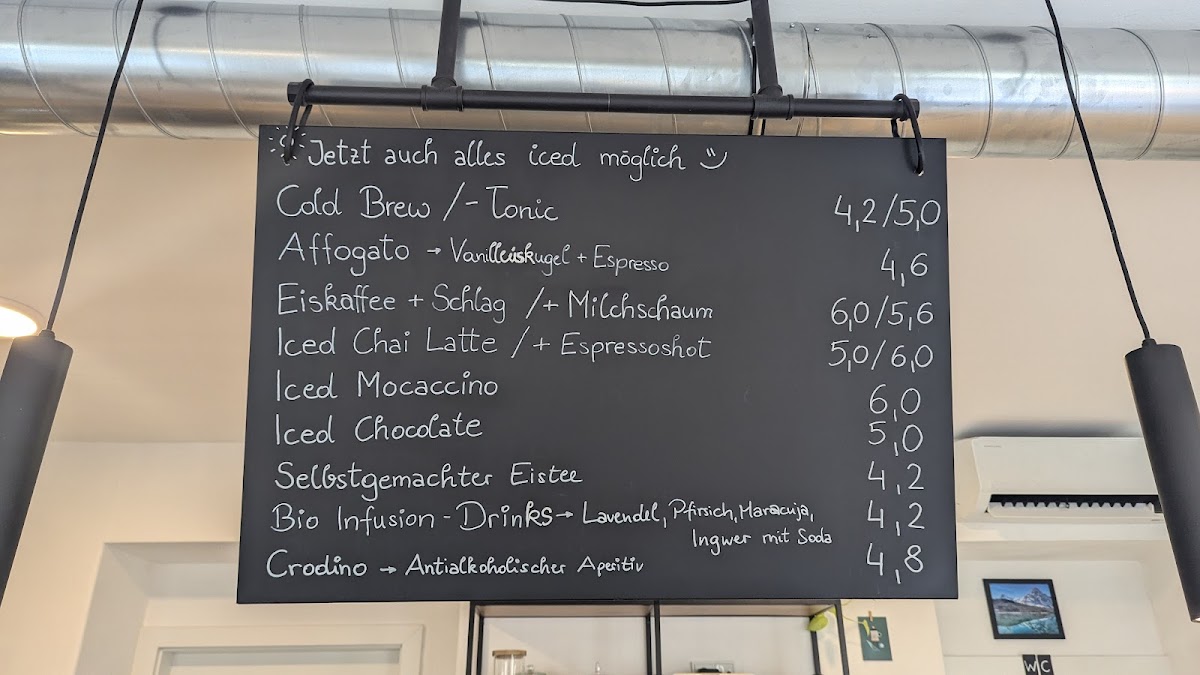 Jetzt auch alles iced möglich
Cold Brew /- Tonic 4,2/5,0
Affogato → Vanilleeiskugel + Espresso 4,6
Eiskaffee + Schlag /+ Milchschaum 6,0/5,6
Iced Chai Latte /+ Espressoshot 5,0/6,0
Iced Mocaccino 6,0
Iced Chocolate 5,0
Selbstgemachter Eistee 4,2
Bio Infusion - Drinks → Lavendel, Pfirsich, Maracuja, 4,2
Ingwer mit Soda
Crodino → Antialkoholischer Aperitiv 4,8
W C